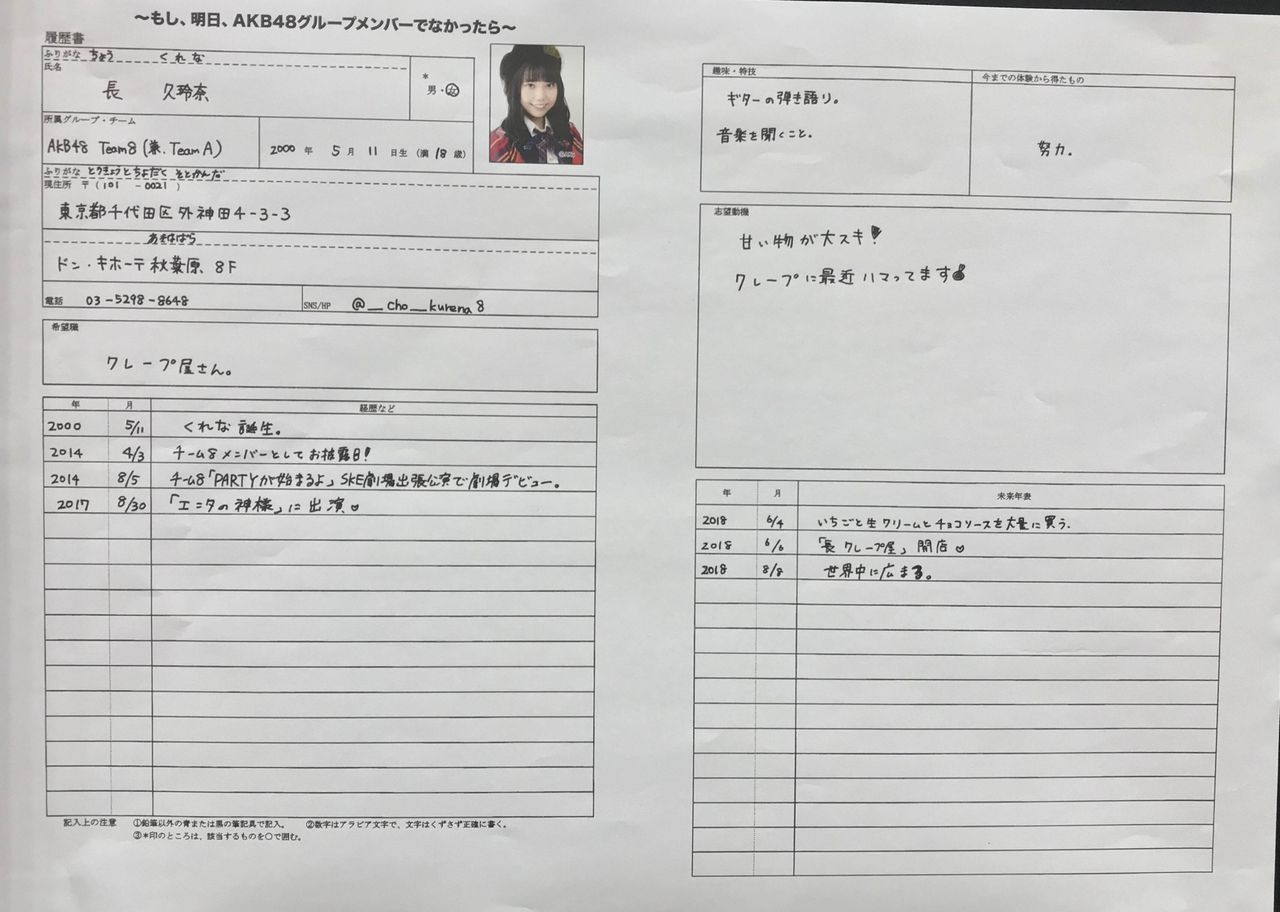 ～もし、明日、AKB48グループメンバーでなかったら～
履歴書
ふりがな ちょう くれな
氏名
長 久玲奈
*
男・女
所属グループ・チーム
AKB48 Team8(兼.TeamA)
2000 年 5 月 11 日生 (満 18 歳)
ふりがな とうきょうとちよだく そとかんだ
現住所 〒(101 -0021 )
東京都千代田区外神田4-3-3
あきはばら
ドン・キホーテ秋葉原 8F
電話 03-5298-8648
SNS/HP @__cho__kurena8
希望職
クレープ屋さん。
年 月 経歴など
2000 5/11 くれな誕生。
2014 4/3 チーム8メンバーとしてお披露目!
2014 8/5 チーム8「PARTYが始まるよ」SKE劇場出張公演で劇場デビュー。
2017 8/30 「エンタの神様」に出演♡
記入上の注意 ①鉛筆以外の青または黒の筆記具で記入。 ②数字はアラビア文字で、文字はくずさず正確に書く。
③*印のところは、該当するものを○で囲む。
趣味・特技
ギターの弾き語り。
音楽を聞くこと。
今までの体験から得たもの
努力。
志望動機
甘い物が大スキ!
クレープに最近ハマってます
年 月 未来年表
2018 6/4 いちごと生クリームとチョコソースを大量に買う.
2018 6/6 「長クレープ屋」開店♡
2018 8/8 世界中に広まる。